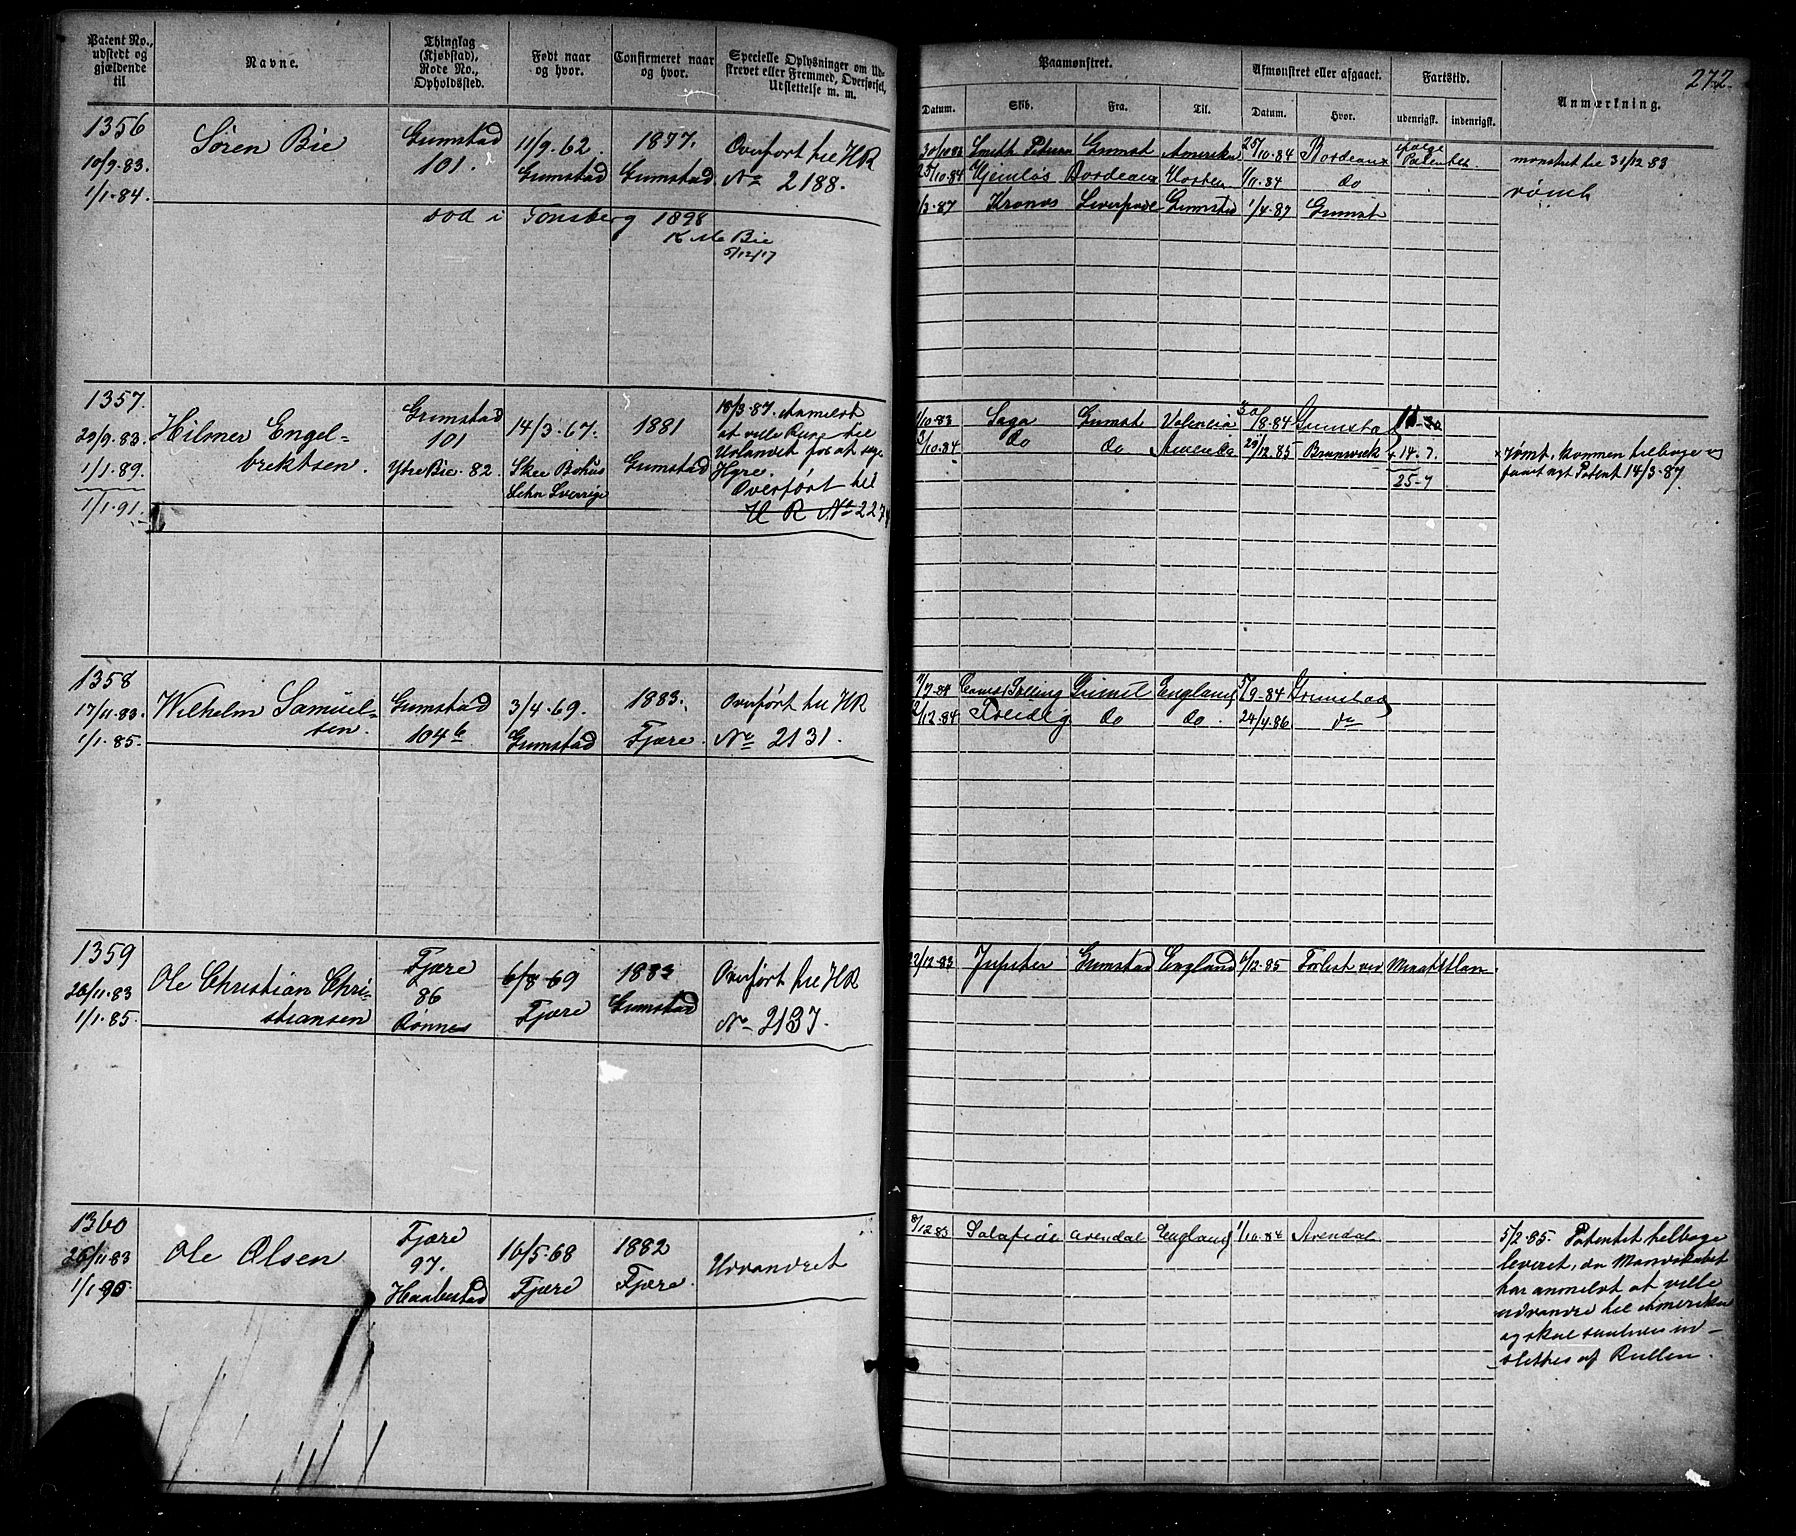 Patent No., udstedt og gjældende til
Navne.
Thinglag (Kjøbstad), Rode No., Opholdssted.
Født naar og hvor.
Confirmeret naar og hvor.
Specielle Oplysninger om Udskrevet eller Fremmed, Overførsel, Udslettelse m. m.
Paamønstret.
Datum.
Skib.
Fra.
Til.
Afmønstret eller afgaaet.
Datum.
Hvor.
Fartstid.
udenrigsk.
indenrigsk.
Anmærkning.
272.
1356
10/9.83.
1/1.84.
Søren Bie
Grimstad
101.
11/9.62.
Grimstad
1877.
Grimstad
Overført til HR
No 2188.
død i Tønsberg 1898
K M Bie
5/12/17
30/10 83 Smith Petersen Grimst Amerika 25/10.84 Bordeaux
25/10.84 Hjemløs Bordeaux Horten 1/11.84 do
1/3.87 Kronos Liverpool Grimstad 1/4.87 Grimst
mønstret til 31/12 83
rømt
1357.
29/9.83.
1/1.89.
1/1.91.
Hilmer Engel-
brektsen.
Grimstad
101
Ytre Bie. 82.
14/3.67.
Skee Bohus
Lehn Sverrige
1881
Grimstad
18/3.87. Anmeldt
at ville reise til
Udlandet for at søge
Hyre.
Overført til
H R No 2274
1/10.83 Saga Grimst Valencia 30/8.84 Grimstad
2/10.84 do do Arendal 29/12.85 Brunswick
14.7.
25-7
x rømt, kommen tilbage og
faaet nyt Patent 14/3.87.
1358
17/11.83.
1/1.85.
Wilhelm Samuel-
sen.
Grimstad
104b
3/4.69.
Grimstad
1883.
Fjære.
Overført til HR
No 2131.
Grimst England 5/9.84 Grimstad
2/12.84 Freidig do do. 24/4.86 do
1359
26/11.83
1/1.85.
Ole Christian Chri-
stiansen
Fjære
86
Rønnes
6/8.69
Fjære
1883
Grimstad
Overført til HR
No 2137.
22/12.83 Jupiter Grimstad England 6/12.85 Forlist ved
1360
26/11.83
1/1.90
Ole Olsen
Fjære
97.
Haabestad
16/5.68
Fjære
1882
Fjære.
Udvandret
8/12.83 Arendal England 1/10.84 Arendal
5/2.85. Patentet tilbage
leveret, da Mandskabet
har anmeldt at ville
udvandre til Amerika
og skal saaledes ud-
slettes af Rullen.